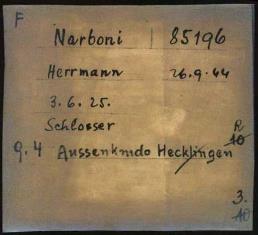 F
Narboni | 85196
Herrmann 26.9.44
3.6.25.
Schlosser
R
10
9.4 Aussenkmdo Hecklingen
3.
10